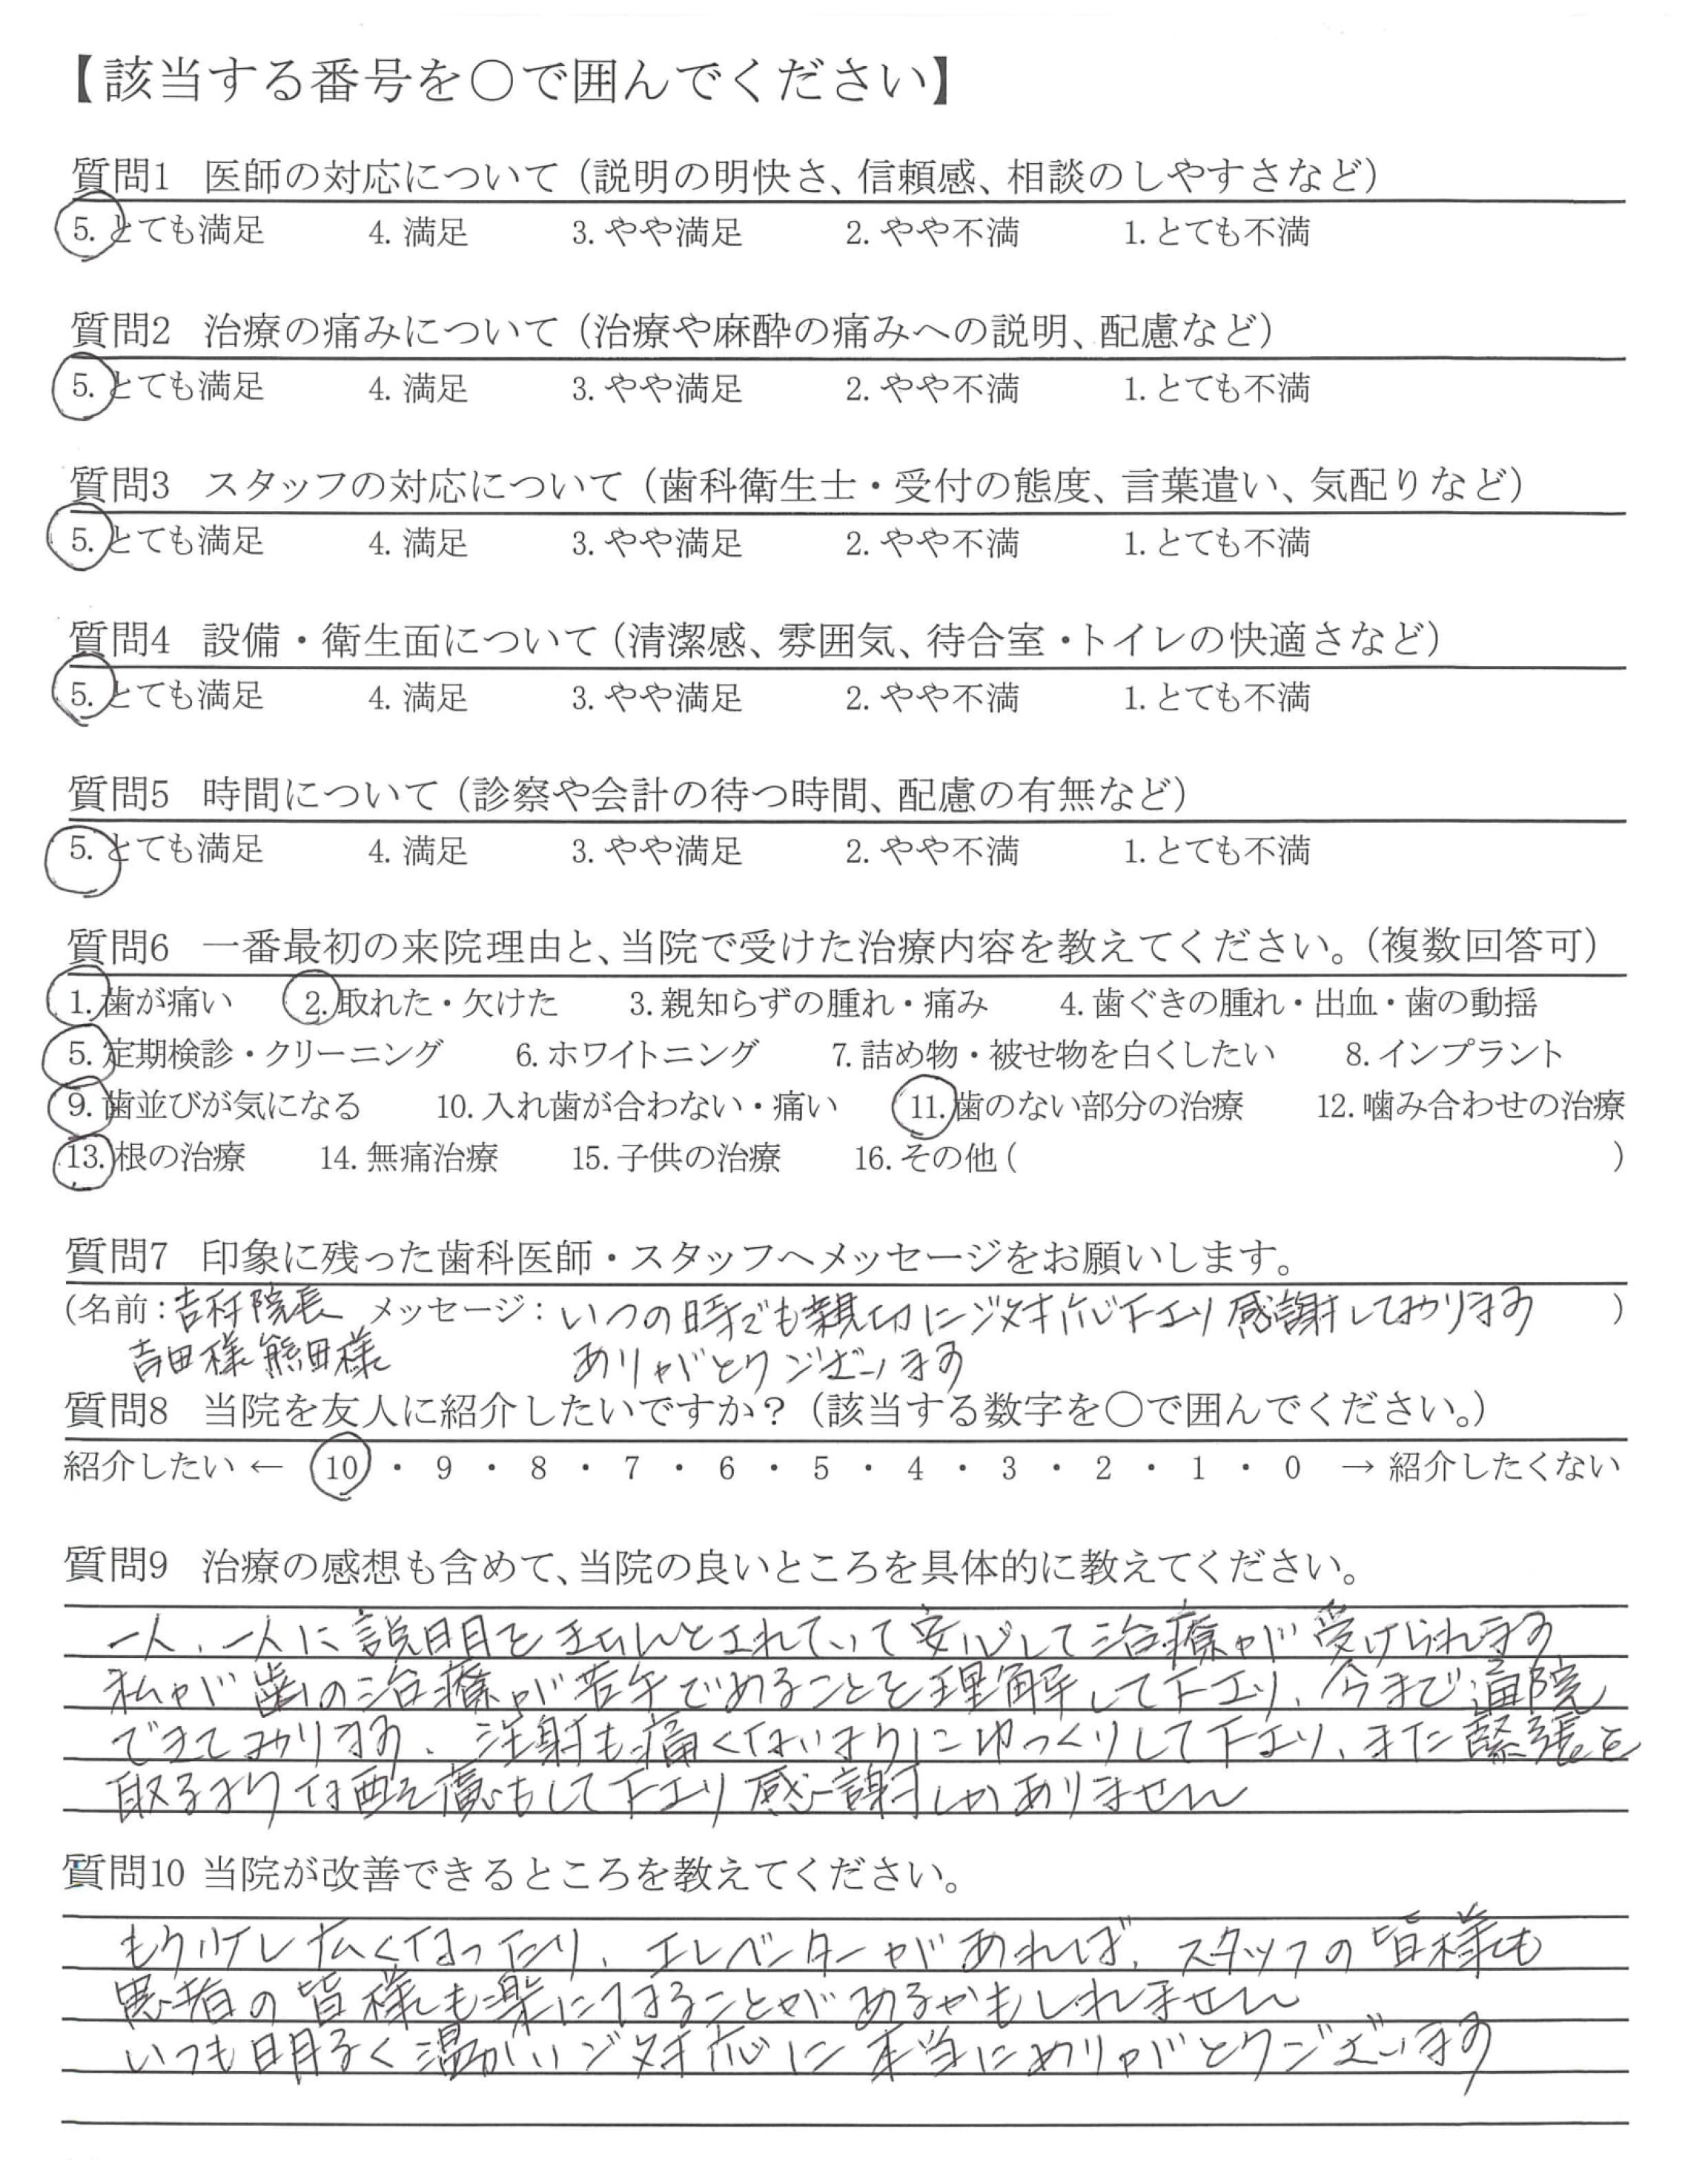 【該当する番号を○で囲んでください】
質問1 医師の対応について（説明の明快さ、信頼感、相談のしやすさなど）
5. とても満足 4. 満足 3. やや満足 2. やや不満 1. とても不満
質問2 治療の痛みについて（治療や麻酔の痛みへの説明、配慮など）
5. とても満足 4. 満足 3. やや満足 2. やや不満 1. とても不満
質問3 スタッフの対応について（歯科衛生士・受付の態度、言葉遣い、気配りなど）
5. とても満足 4. 満足 3. やや満足 2. やや不満 1. とても不満
質問4 設備・衛生面について（清潔感、雰囲気、待合室・トイレの快適さなど）
5. とても満足 4. 満足 3. やや満足 2. やや不満 1. とても不満
質問5 時間について（診察や会計の待つ時間、配慮の有無など）
5. とても満足 4. 満足 3. やや満足 2. やや不満 1. とても不満
質問6 一番最初の来院理由と、当院で受けた治療内容を教えてください。（複数回答可）
1. 歯が痛い 2. 取れた・欠けた 3. 親知らずの腫れ・痛み 4. 歯ぐきの腫れ・出血・歯の動揺
5. 定期検診・クリーニング 6. ホワイトニング 7. 詰め物・被せ物を白くしたい 8. インプラント
9. 歯並びが気になる 10. 入れ歯が合わない・痛い 11. 歯のない部分の治療 12. 噛み合わせの治療
13. 根の治療 14. 無痛治療 15. 子供の治療 16. その他（ ）
質問7 印象に残った歯科医師・スタッフへメッセージをお願いします。
（名前：吉村院長 メッセージ：いつの時でも親切にご対応下さり感謝しております ）
吉田様 熊田様 ありがとうございます
質問8 当院を友人に紹介したいですか？（該当する数字を○で囲んでください。）
紹介したい ← 10 ・ 9 ・ 8 ・ 7 ・ 6 ・ 5 ・ 4 ・ 3 ・ 2 ・ 1 ・ 0 → 紹介したくない
質問9 治療の感想も含めて、当院の良いところを具体的に教えてください。
一人、一人に説明をきちんとされていて安心して治療が受けられます
私が歯の治療が苦手であることを理解して下さり、今まで通院
できております、注射も痛くないようにゆっくりして下さり、また緊張を
取るような配慮もして下さり感謝しかありません
質問10 当院が改善できるところを教えてください。
もう少し広くなったり、エレベーターがあれば、スタッフの皆様も
患者の皆様も楽になることがあるかもしれません
いつも明るく温かいご対応に本当にありがとうございます